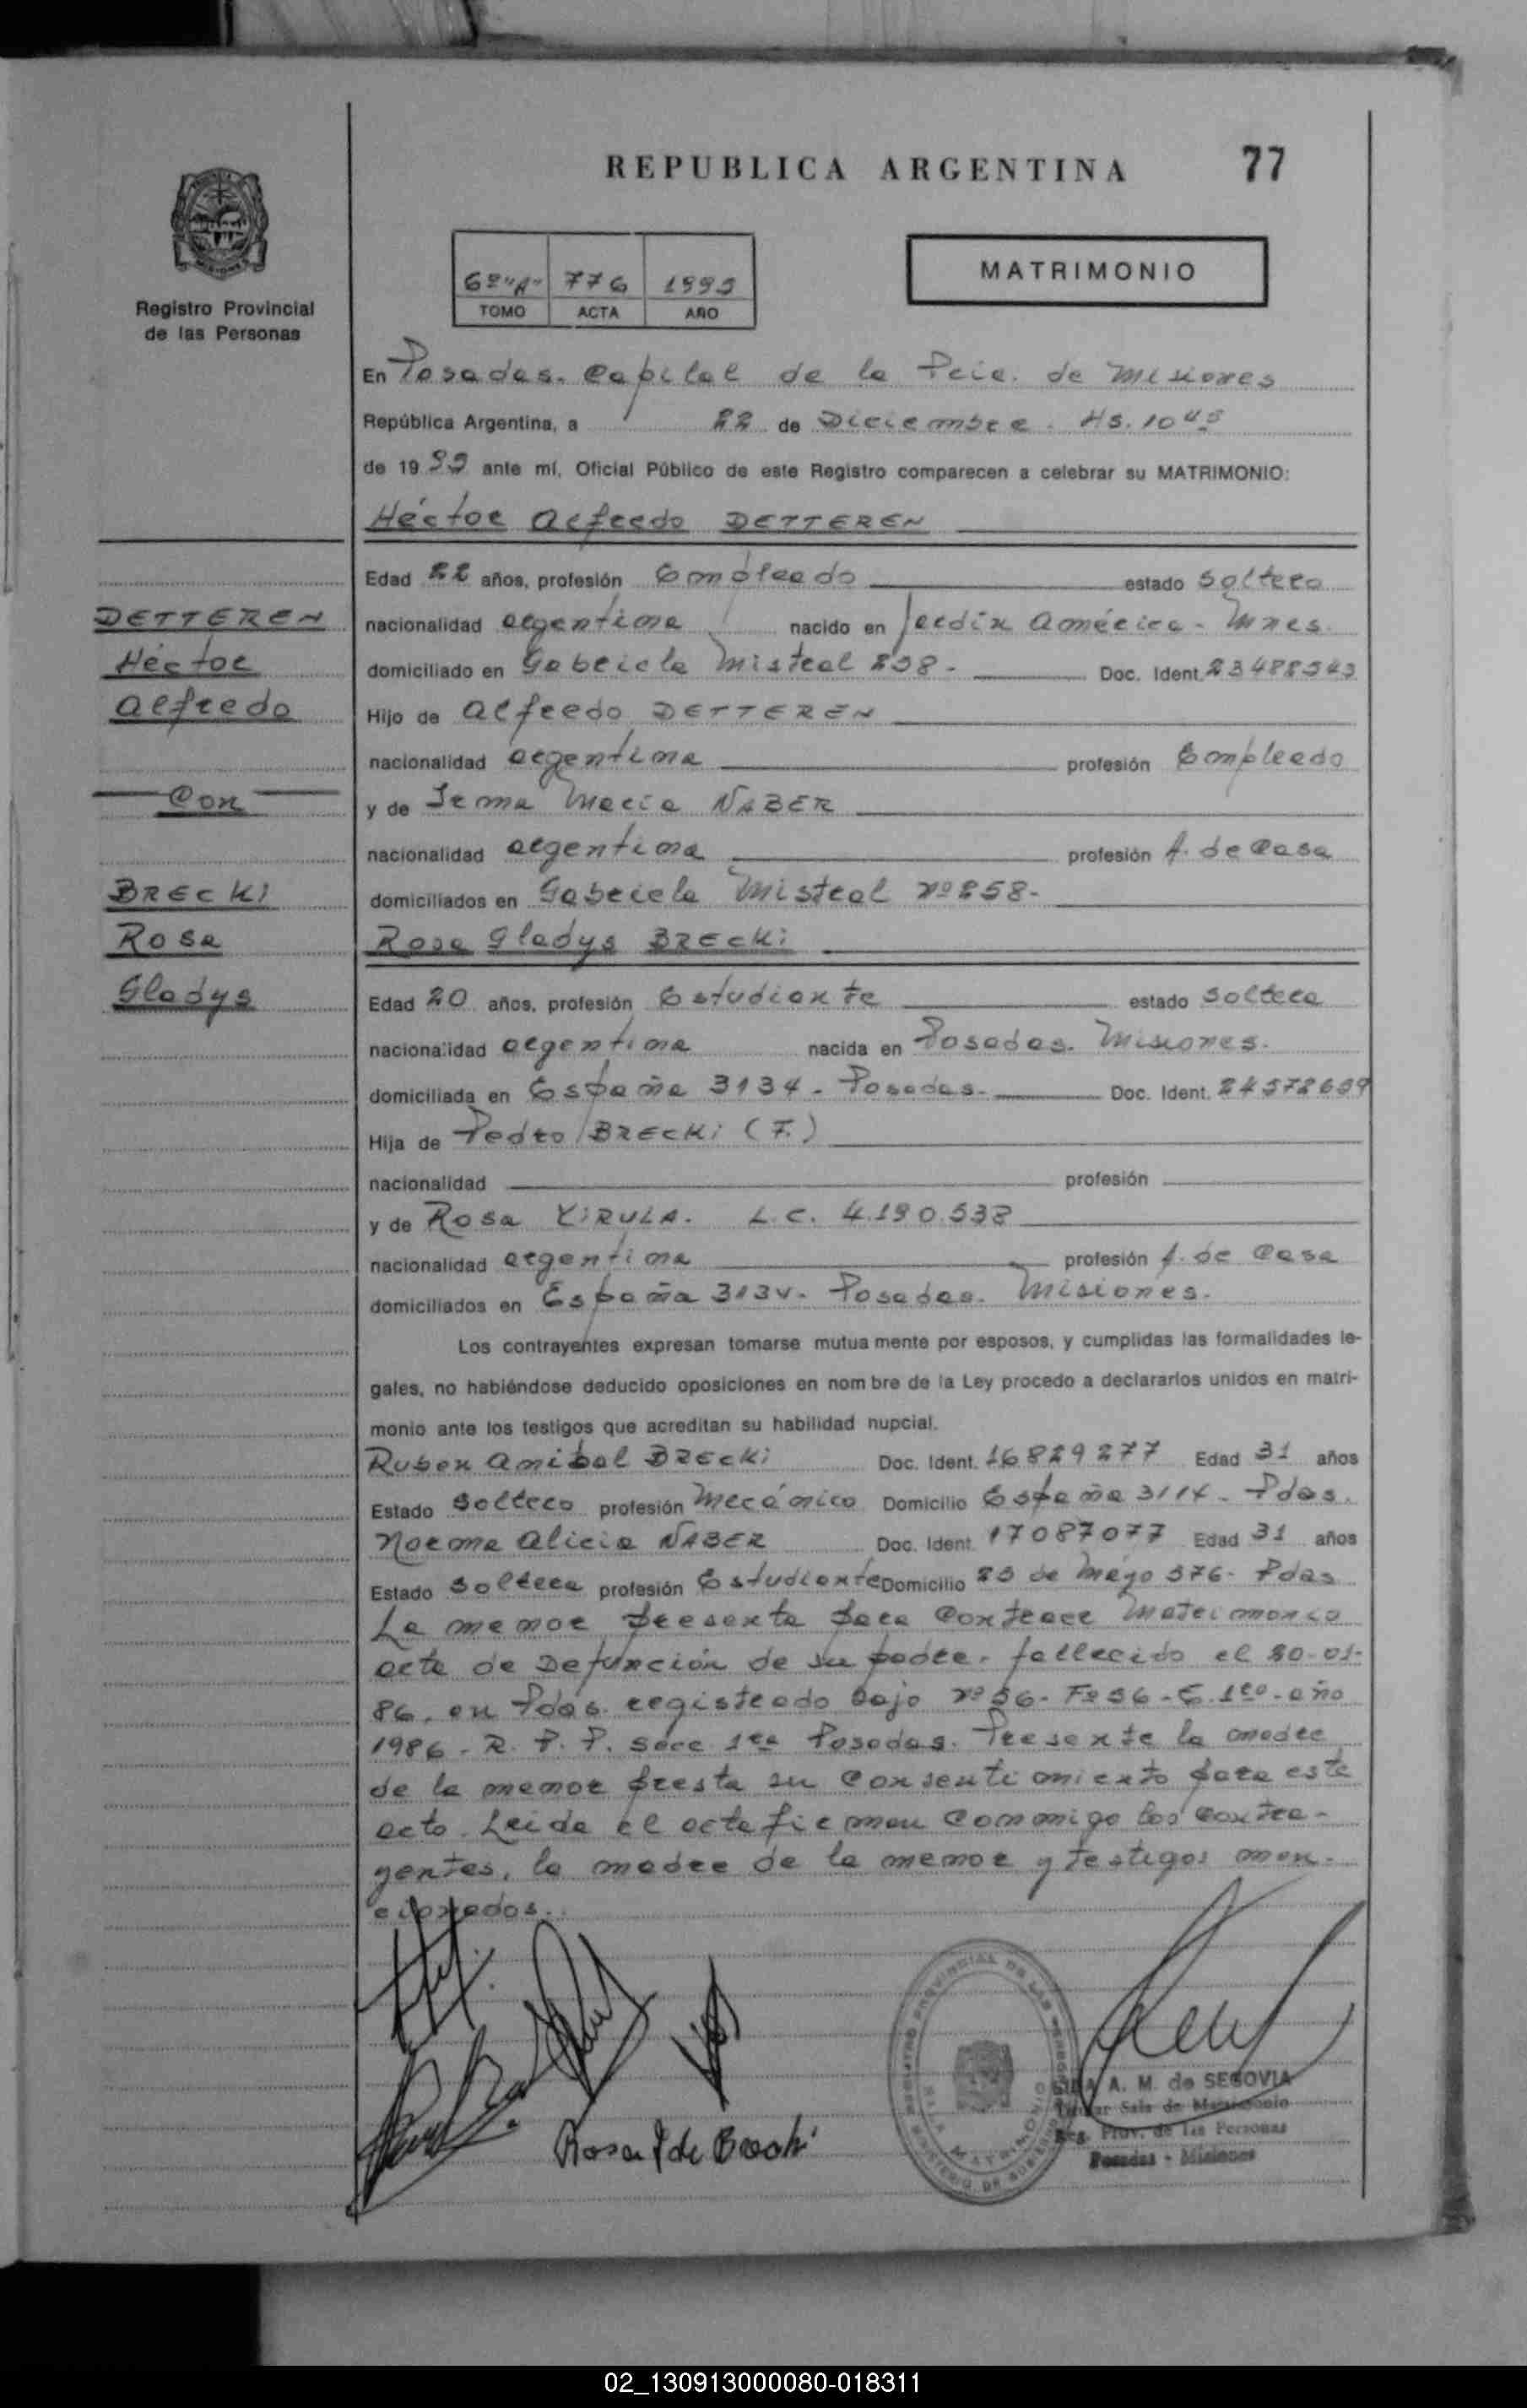 REPUBLICA ARGENTINA 77
Registro Provincial
de las Personas
6º "A" 776
TOMO ACTA AÑO
MATRIMONIO
En Posadas. Capital de la Pcia. de Misiones
República Argentina, a 22 de Diciembre. Hs. 10 45
de 19 ante mí, Oficial Público de este Registro comparecen a celebrar su MATRIMONIO:
Héctor Alfredo DETTEREN
Edad 22 años, profesión Empleado estado soltero
DETTEREN
nacionalidad argentina nacido en Jardín América - Mnes.
Héctor
domiciliado en Gabriela Mistral 258. Doc. Ident.
Alfredo
Hijo de Alfredo DETTEREN
nacionalidad argentina profesión Empleado
Con
y de Irma María NABER
nacionalidad argentina profesión A. de Casa
BRECKI
domiciliados en Gabriela Mistral nº 258-
Rosa
Rosa Gladys BRECKI
Gladys
Edad 20 años, profesión Estudiante estado soltera
nacionalidad argentina nacida en Posadas. Misiones.
domiciliada en España 3134 - Posadas. Doc. Ident.
Hija de Pedro BRECKI (F.)
nacionalidad profesión
y de Rosa L.C.
nacionalidad argentina profesión A. de Casa
domiciliados en España 3134. Posadas. Misiones.
Los contrayentes expresan tomarse mutua mente por esposos, y cumplidas las formalidades le-
gales, no habiéndose deducido oposiciones en nom bre de la Ley procedo a declararlos unidos en matri-
monio ante los testigos que acreditan su habilidad nupcial.
Ruben Anibal BRECKI Doc. Ident. 16829277 Edad 31 años
Estado soltero profesión Mecánico Domicilio España - Pdas.
Norma Alicia NABER Doc. Ident. 17087077 Edad 31 años
Estado soltera profesión Estudiante Domicilio 25 de Mayo 376- Pdas
La menor presenta para contraer matrimonio
acta de Defunción de su padre. fallecido el
86, en Pdas. registrado bajo nº 56- Fº 56 - año
1986 - R. P. P. Secc. 1ra Posadas. Presente la madre
de la menor presta su consentimiento para este
acto. Leída el acta firman conmigo los contra-
yentes, la madre de la menor y testigos men-
cionados.
Rosa de Brecki
A. M. de SEGOVIA
Sala de Matrimonio
Reg. Prov. de las Personas
Posadas - Misiones
02_130913000080-018311